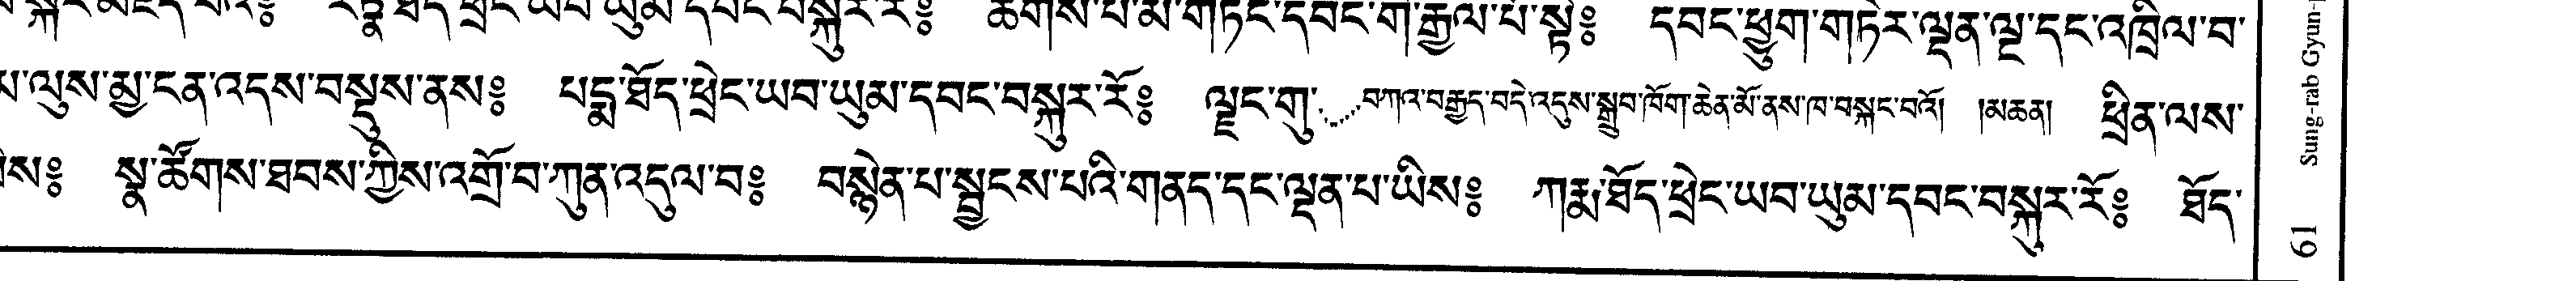 རཏྣ་ཐོད་ཕྲེང་ཡབ་ཡུམ་དབང་བསྐུར་རོ༔ ཆགས་པ་མ་གཏང་དབང་གི་རྒྱལ་པོ་སྟེ༔ དབང་ཕྱུག་གཏེར་ལྡན་ལྔ་དང་འཁྲིལ་བ་
ལུས་མྱ་ངན་འདས་བསྡུས་ནས༔ པདྨ་ཐོད་ཕྲེང་ཡབ་ཡུམ་དབང་བསྐུར་རོ༔ ལྗང་གུ་བཀའ་བརྒྱད་བདེ་འདུས་སྒྲུབ་ཁོག་ཆེན་མོ་ནས་ཁ་བསྐང་བའོ། །མཆན། ཕྲིན་ལས་
སྣ་ཚོགས་ཐབས་ཀྱིས་འགྲོ་བ་ཀུན་འདུལ་བ༔ བསྙེན་པ་སྦྱངས་པའི་གནད་དང་ལྡན་པ་ཡིས༔ ཀརྨ་ཐོད་ཕྲེང་ཡབ་ཡུམ་དབང་བསྐུར་རོ༔ ཐོད་
Sung-rab Gyun-
61